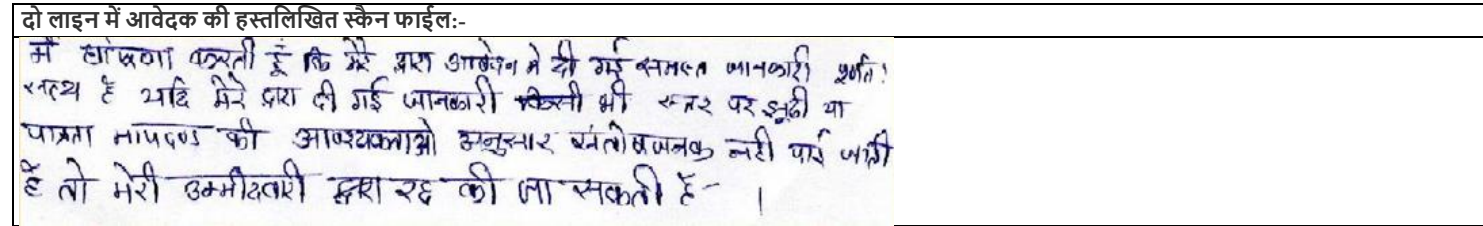 दो लाइन में आवेदक की हस्तलिखित स्कैन फाईल:-
मैं घोषणा करती हूं कि मेरे द्वारा आवेदन मे दी गई समस्त जानकारी पूर्णतः
सत्य है यदि मेरे द्वारा दी गई जानकारी किसी भी स्तर पर झूठी या
पात्रता मापदण्ड की आवश्यकताओ अनुसार संतोषजनक नही पाई जाती
है तो मेरी उम्मीदवारी द्वारा रद्द की जा सकती है- ।